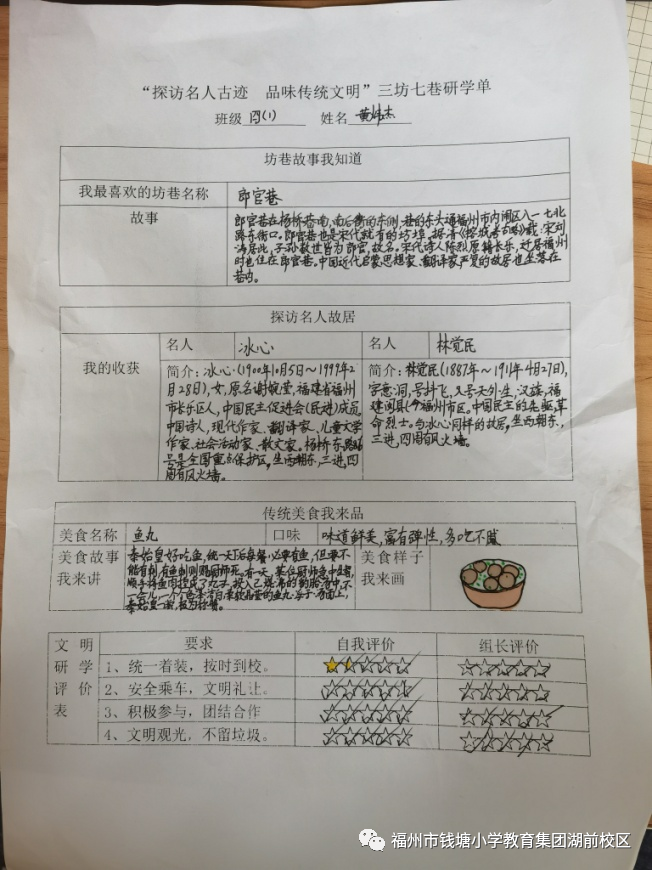 “探访名人古迹 品味传统文明”三坊七巷研学单
班级 四(1) 姓名 黄炜杰
坊巷故事我知道
我最喜欢的坊巷名称 郎官巷
故事
郎官巷在杨桥巷南,南后街的东侧,巷的东头通福州市内闹区八一七北
路东街口。郎官巷也是宋代就有的坊
宋刘
涛居此,子孙数世皆为郎官,故名。宋代诗人陈烈原籍长乐,迁居福州
时也住在郎官巷。中国近代启蒙思想家、翻译家严复的故居也坐落在
巷内。
探访名人故居
我的收获
名人 冰心
简介:冰心(1900年10月5日~1999年2
月28日),女,原名谢婉莹,福建省福州
市长乐区人,中国民主促进会(民进)成员。
中国诗人,现代作家、翻译家、儿童文学
作家、社会活动家、散文家。杨桥东路
号是全国重点保护区,坐西朝东,三进,四
周有风火墙。
名人 林觉民
简介:林觉民(1887年~1911年4月27日),
字意洞,号抖飞,又号天外生,汉族,福
建闽县(今福州市区,中国民主的先驱,革
命烈士。与冰心同样的故居,坐西朝东,
三进,四周有风火墙。
传统美食我来品
美食名称 鱼丸 口味 味道鲜美,富有弹性,多吃不腻
美食故事
我来讲
秦始皇好吃鱼,统一天下后每餐必要有鱼,但要不
能有刺,有鱼刺则赐厨师死。有一天,某位厨师
顺手将鱼肉捏成了丸子,投入已烧沸的豹胎汤中,不
一会儿,一个个色泽洁白、柔软晶莹的鱼丸浮于汤面上,
秦始皇一尝,极为称赞。
美食样子
我来画
文明
研学
评价
表
要求 自我评价 组长评价
1、统一着装,按时到校。
2、安全乘车,文明礼让。
3、积极参与,团结合作
4、文明观光,不留垃圾。
福州市钱塘小学教育集团湖前校区